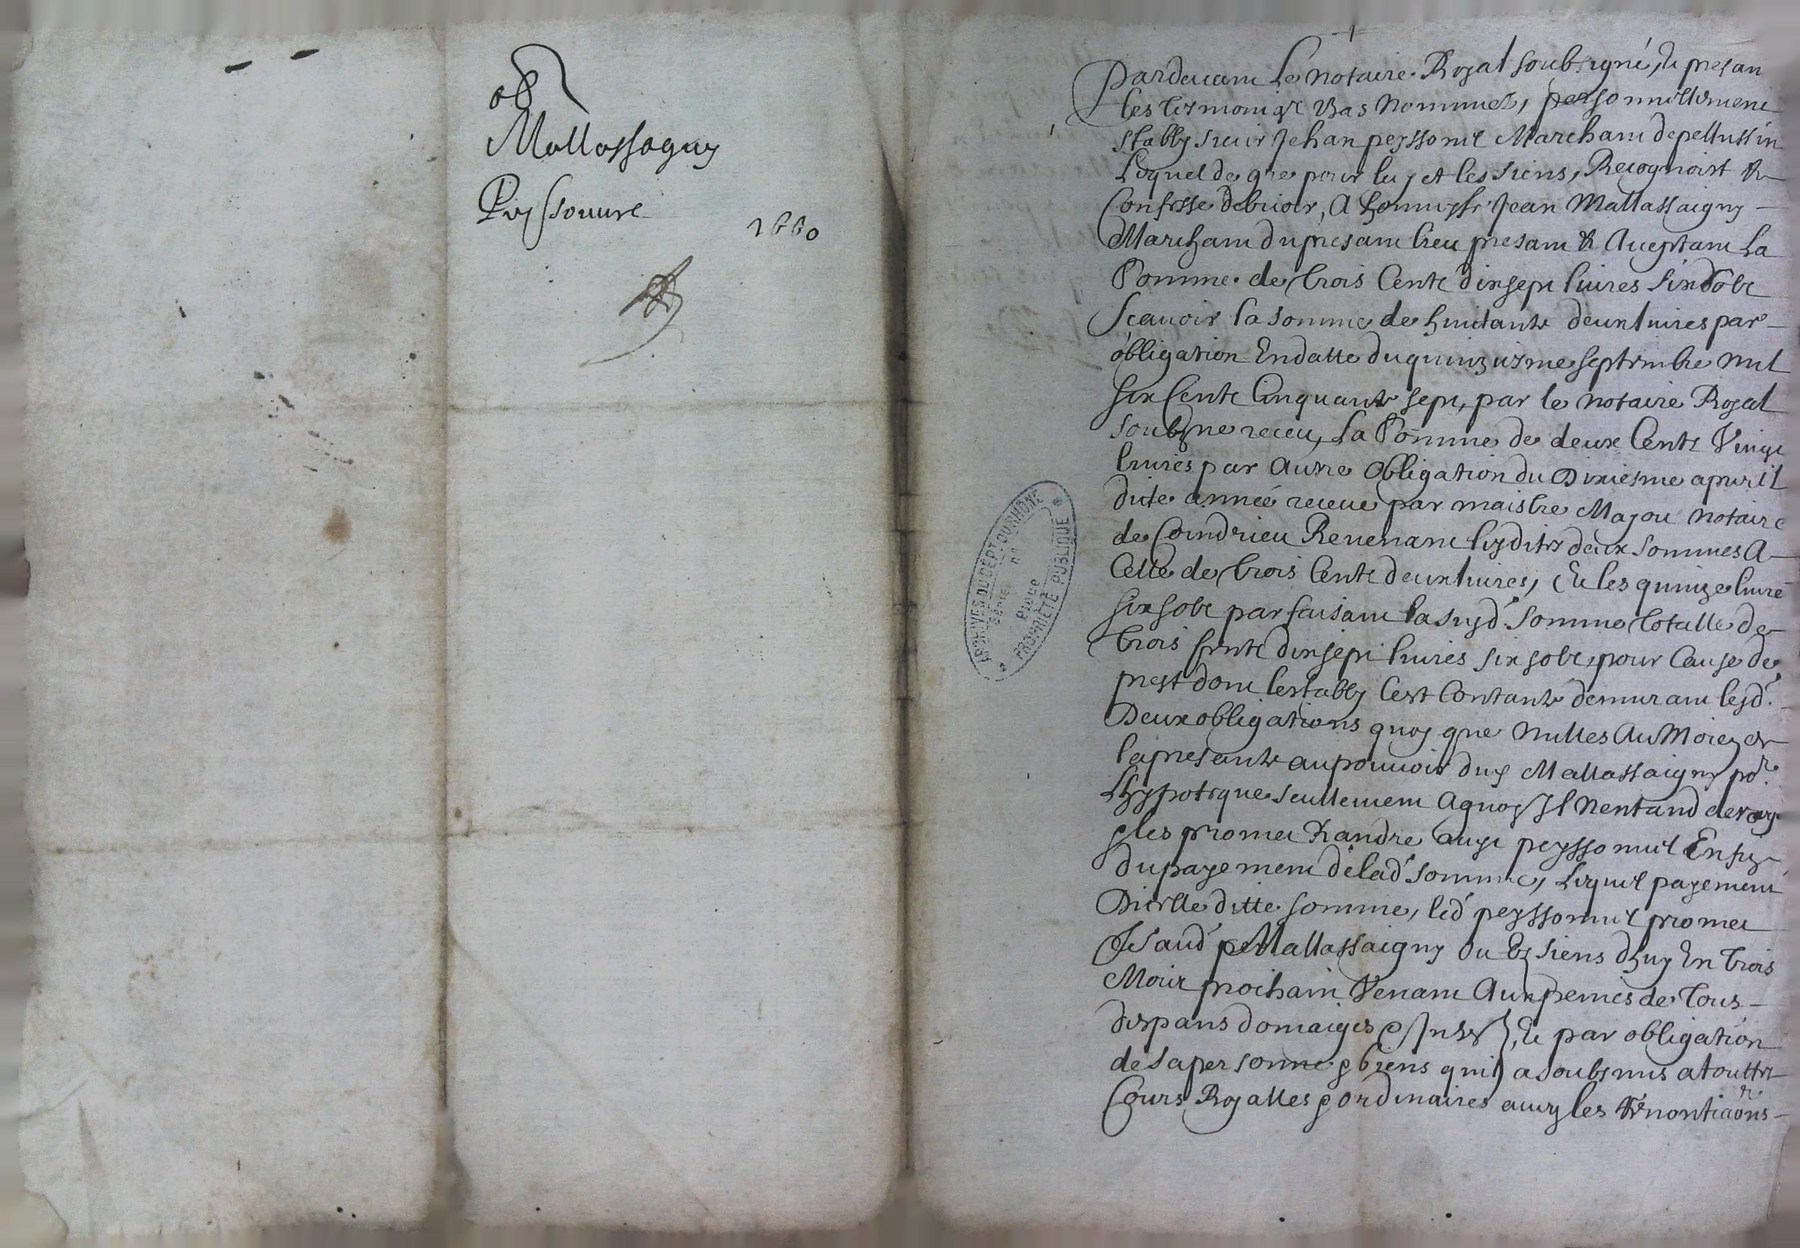 obon
Mallassagny
Peyssonnel
1660
ARCHIVES DU DEPT DU RHONE
SERIE
N°
Pièce
PROPRIÉTÉ PUBLIQUE
Pardevant Le notaire Royal soubsigné, & presan
les tesmoingz bas nommes, personnellement
stably sieur Jehan peyssonel Marchant de pellussin
Lequel de gre pour luy et les siens, Recognoist &
Confesse debvoir, A honneste Jean Mallassaigny
Marchant du presant lieu presant & Aceptant La
somme de trois Cents dix sept livres six sobz
scavoir la somme de huictante deux livres par
obligation En datte du quinziesme septembre mil
six Cents Cinquante sept, par le notaire Royal
soubsigne receu, La somme de deux Cents Vingt
livres par autre obligation du Dixiesme apvril
dite année receue par maistre Majou notaire
de Coindrieu Revenant lesdites deux sommes A
Celle de trois Cents deux livres, Et les quinze livre
six sobz parfaisant la susd. somme totalle de
trois Cents dix sept livres six sobz, pour Cause de
prest dont lestably Cest Contanté demurant lesd.
Deux obligations quoy que nulles Au Moien de
la presante au pouvoir dud Mallassaigny por.
Lhypoteque seullement Aquoy Il Nentand desroger
& les promet Randre audt peyssonnel En fin
du payement de lad somme, Lequel payement
Dicelle ditte somme, led peyssonnel promet
aud Mallassaigny ou les siens dhuy En trois
Moix prochain Venant Aux peines de tous
despans domaiges & Intestz, Et par obligation
de sa personne & biens quil a soubsmis a touttes
Cours Royalles & ordinaires avecq les Renontiaons